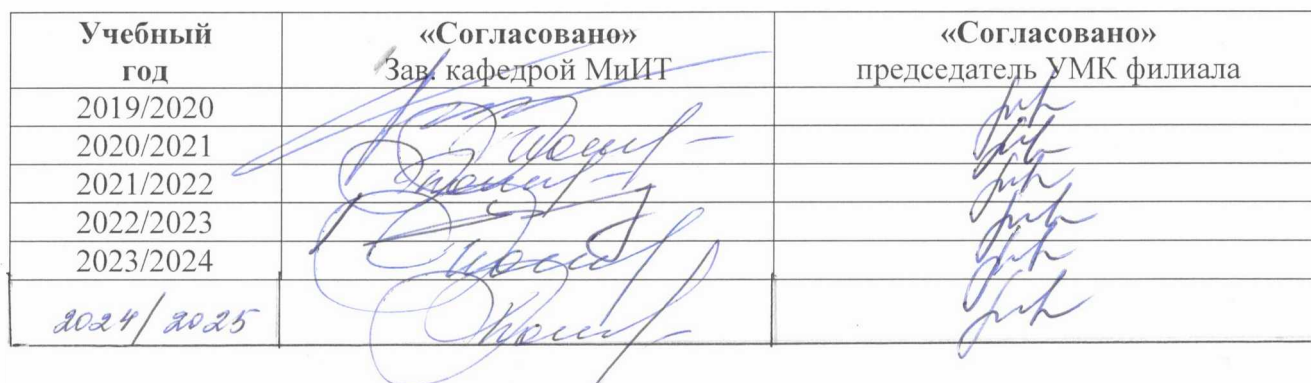 Учебный год
«Согласовано» Зав. кафедрой МиИТ
«Согласовано» председатель УМК филиала
2019/2020
2020/2021
2021/2022
2022/2023
2023/2024
2024/2025